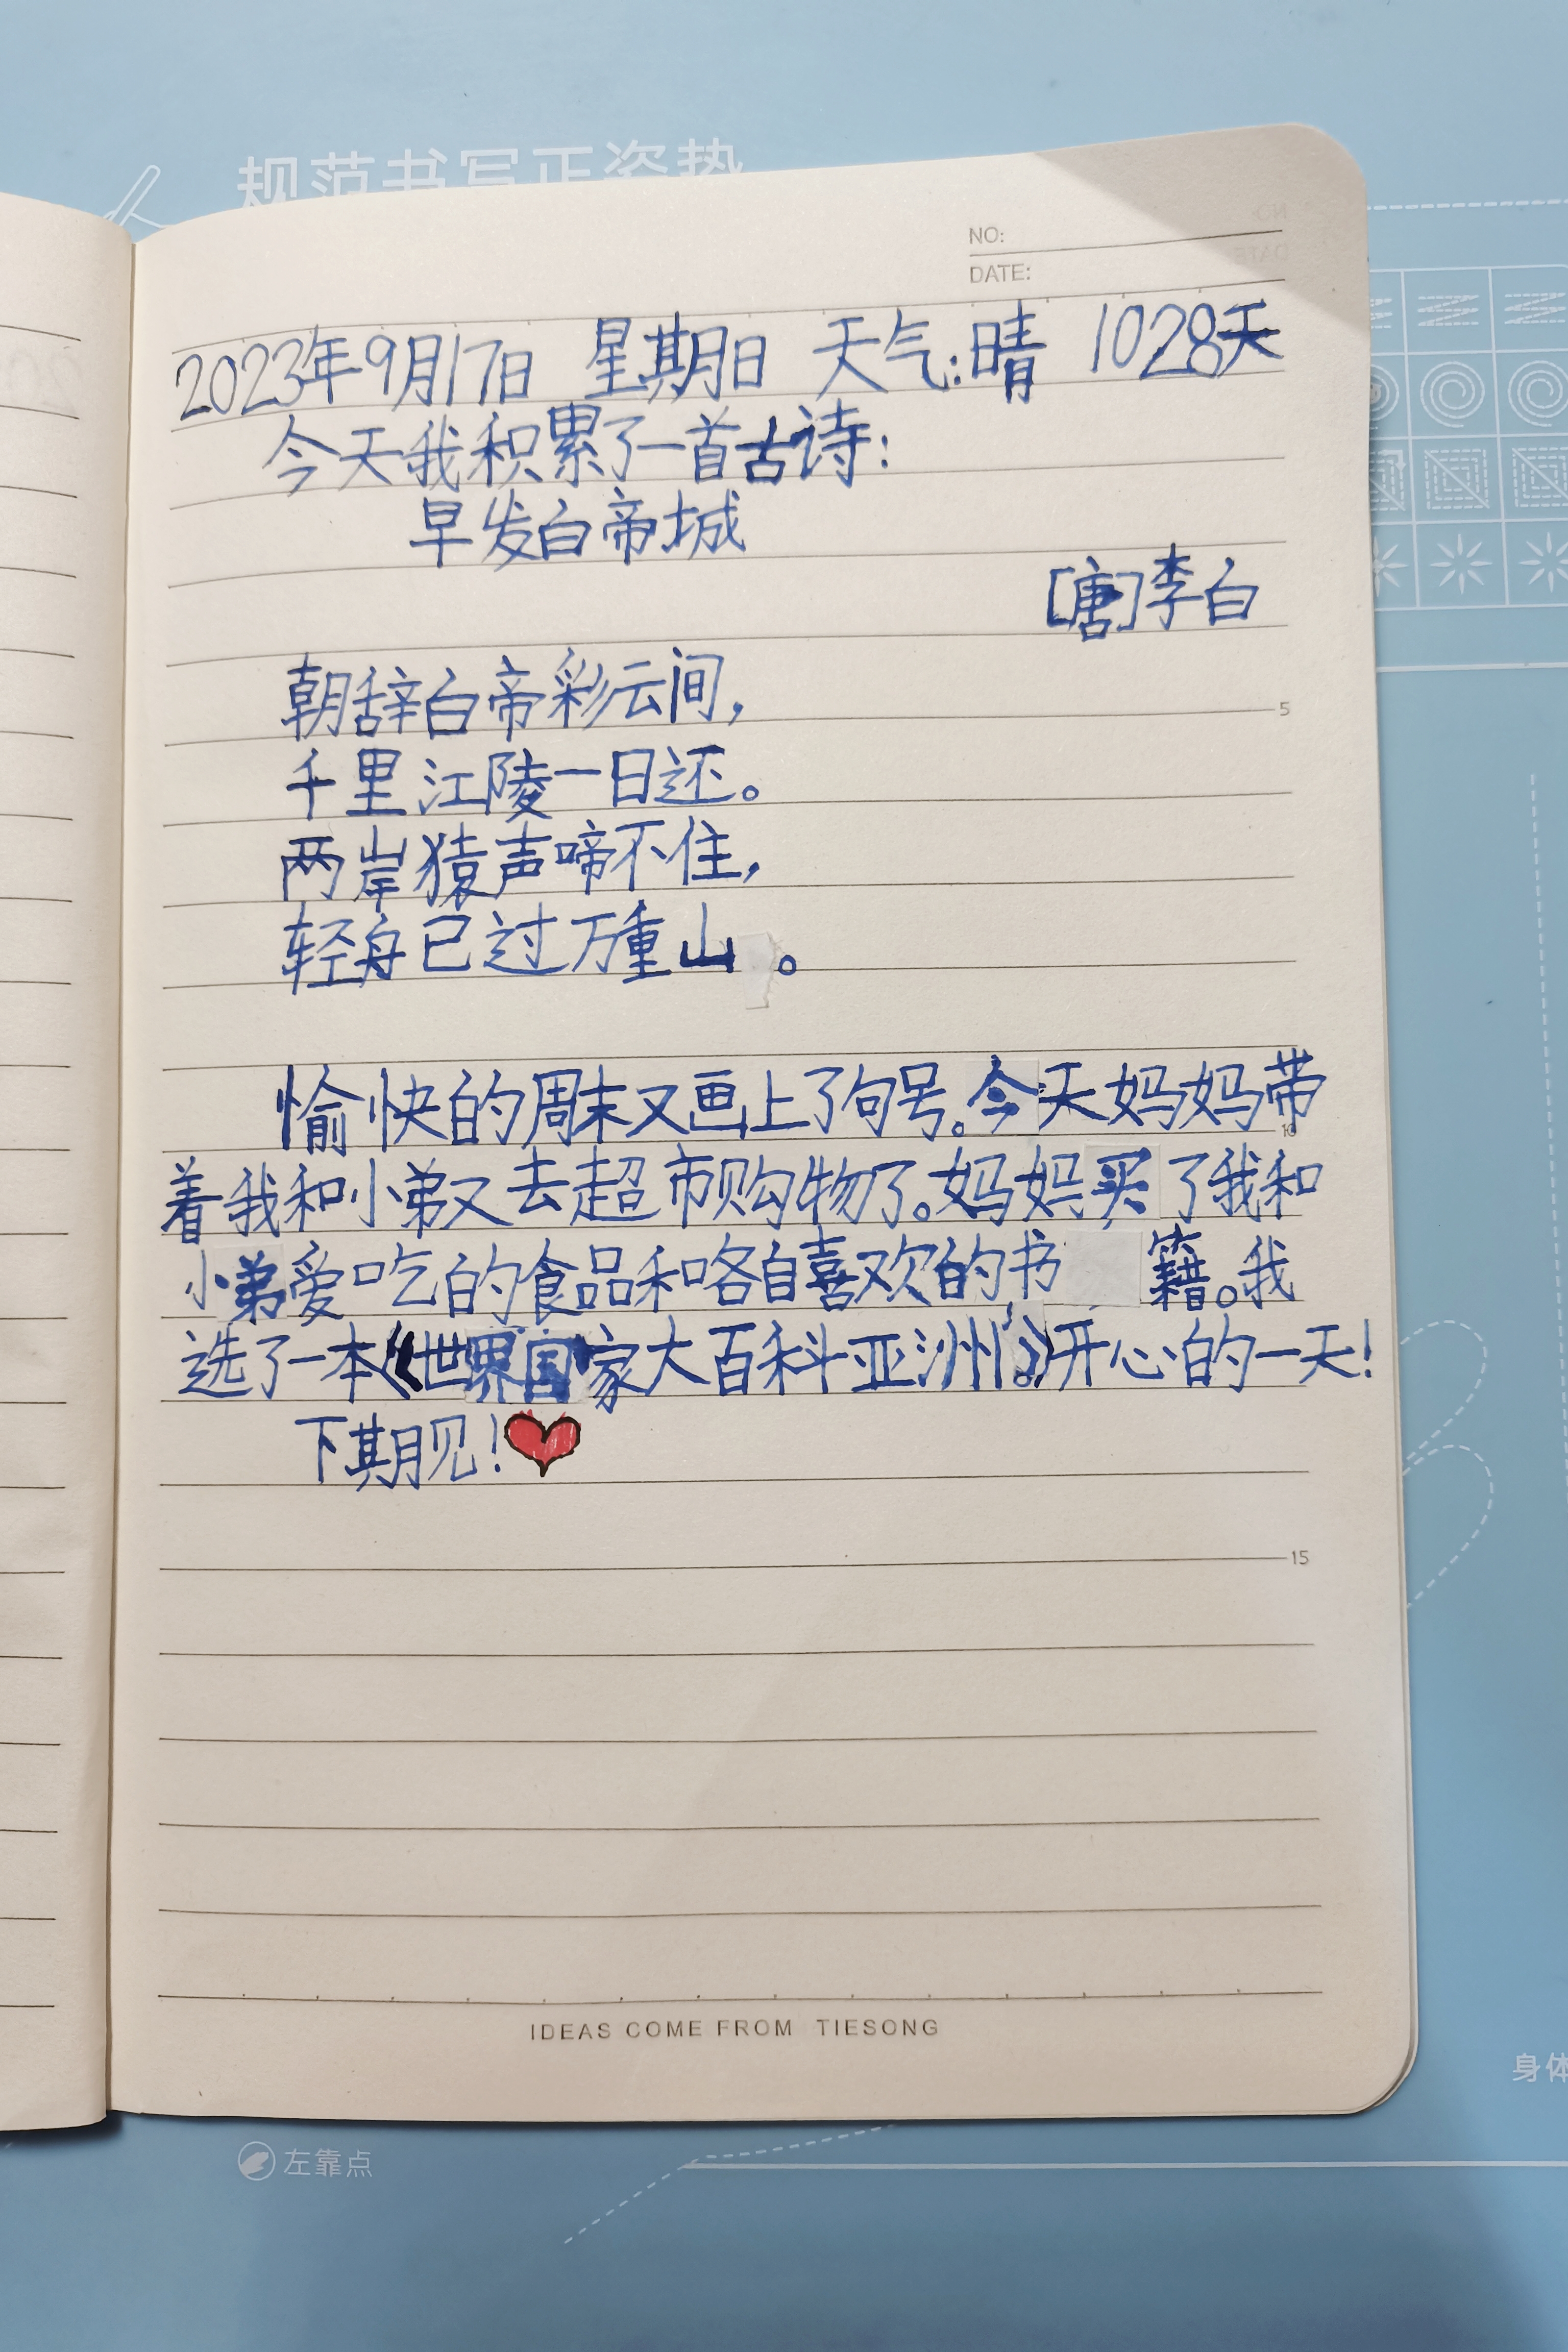 规范书写正姿势
NO:
DATE:
2023年9月17日 星期日 天气:晴 1028天
今天我积累了一首古诗:
早发白帝城
[唐]李白
朝辞白帝彩云间,
5
千里江陵一日还。
两岸猿声啼不住,
轻舟已过万重山。
愉快的周末又画上了句号。今天妈妈带
10
着我和小弟又去超市购物了。妈妈买了我和
小弟爱吃的食品和咯自喜欢的书籍。我
选了一本《世界国家大百科亚洲。》开心的一天!
下期见!
15
IDEAS COME FROM TIESONG
身体
左靠点